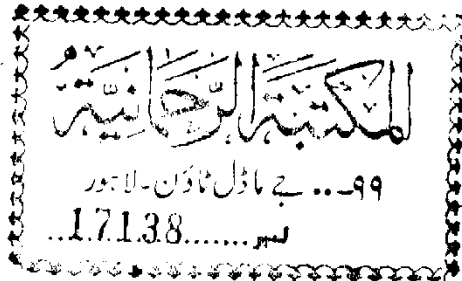 المكتبة الرحمانية
۹۹-.. جے ماڈل ٹاؤن-لاہور
نمبر...17138.......